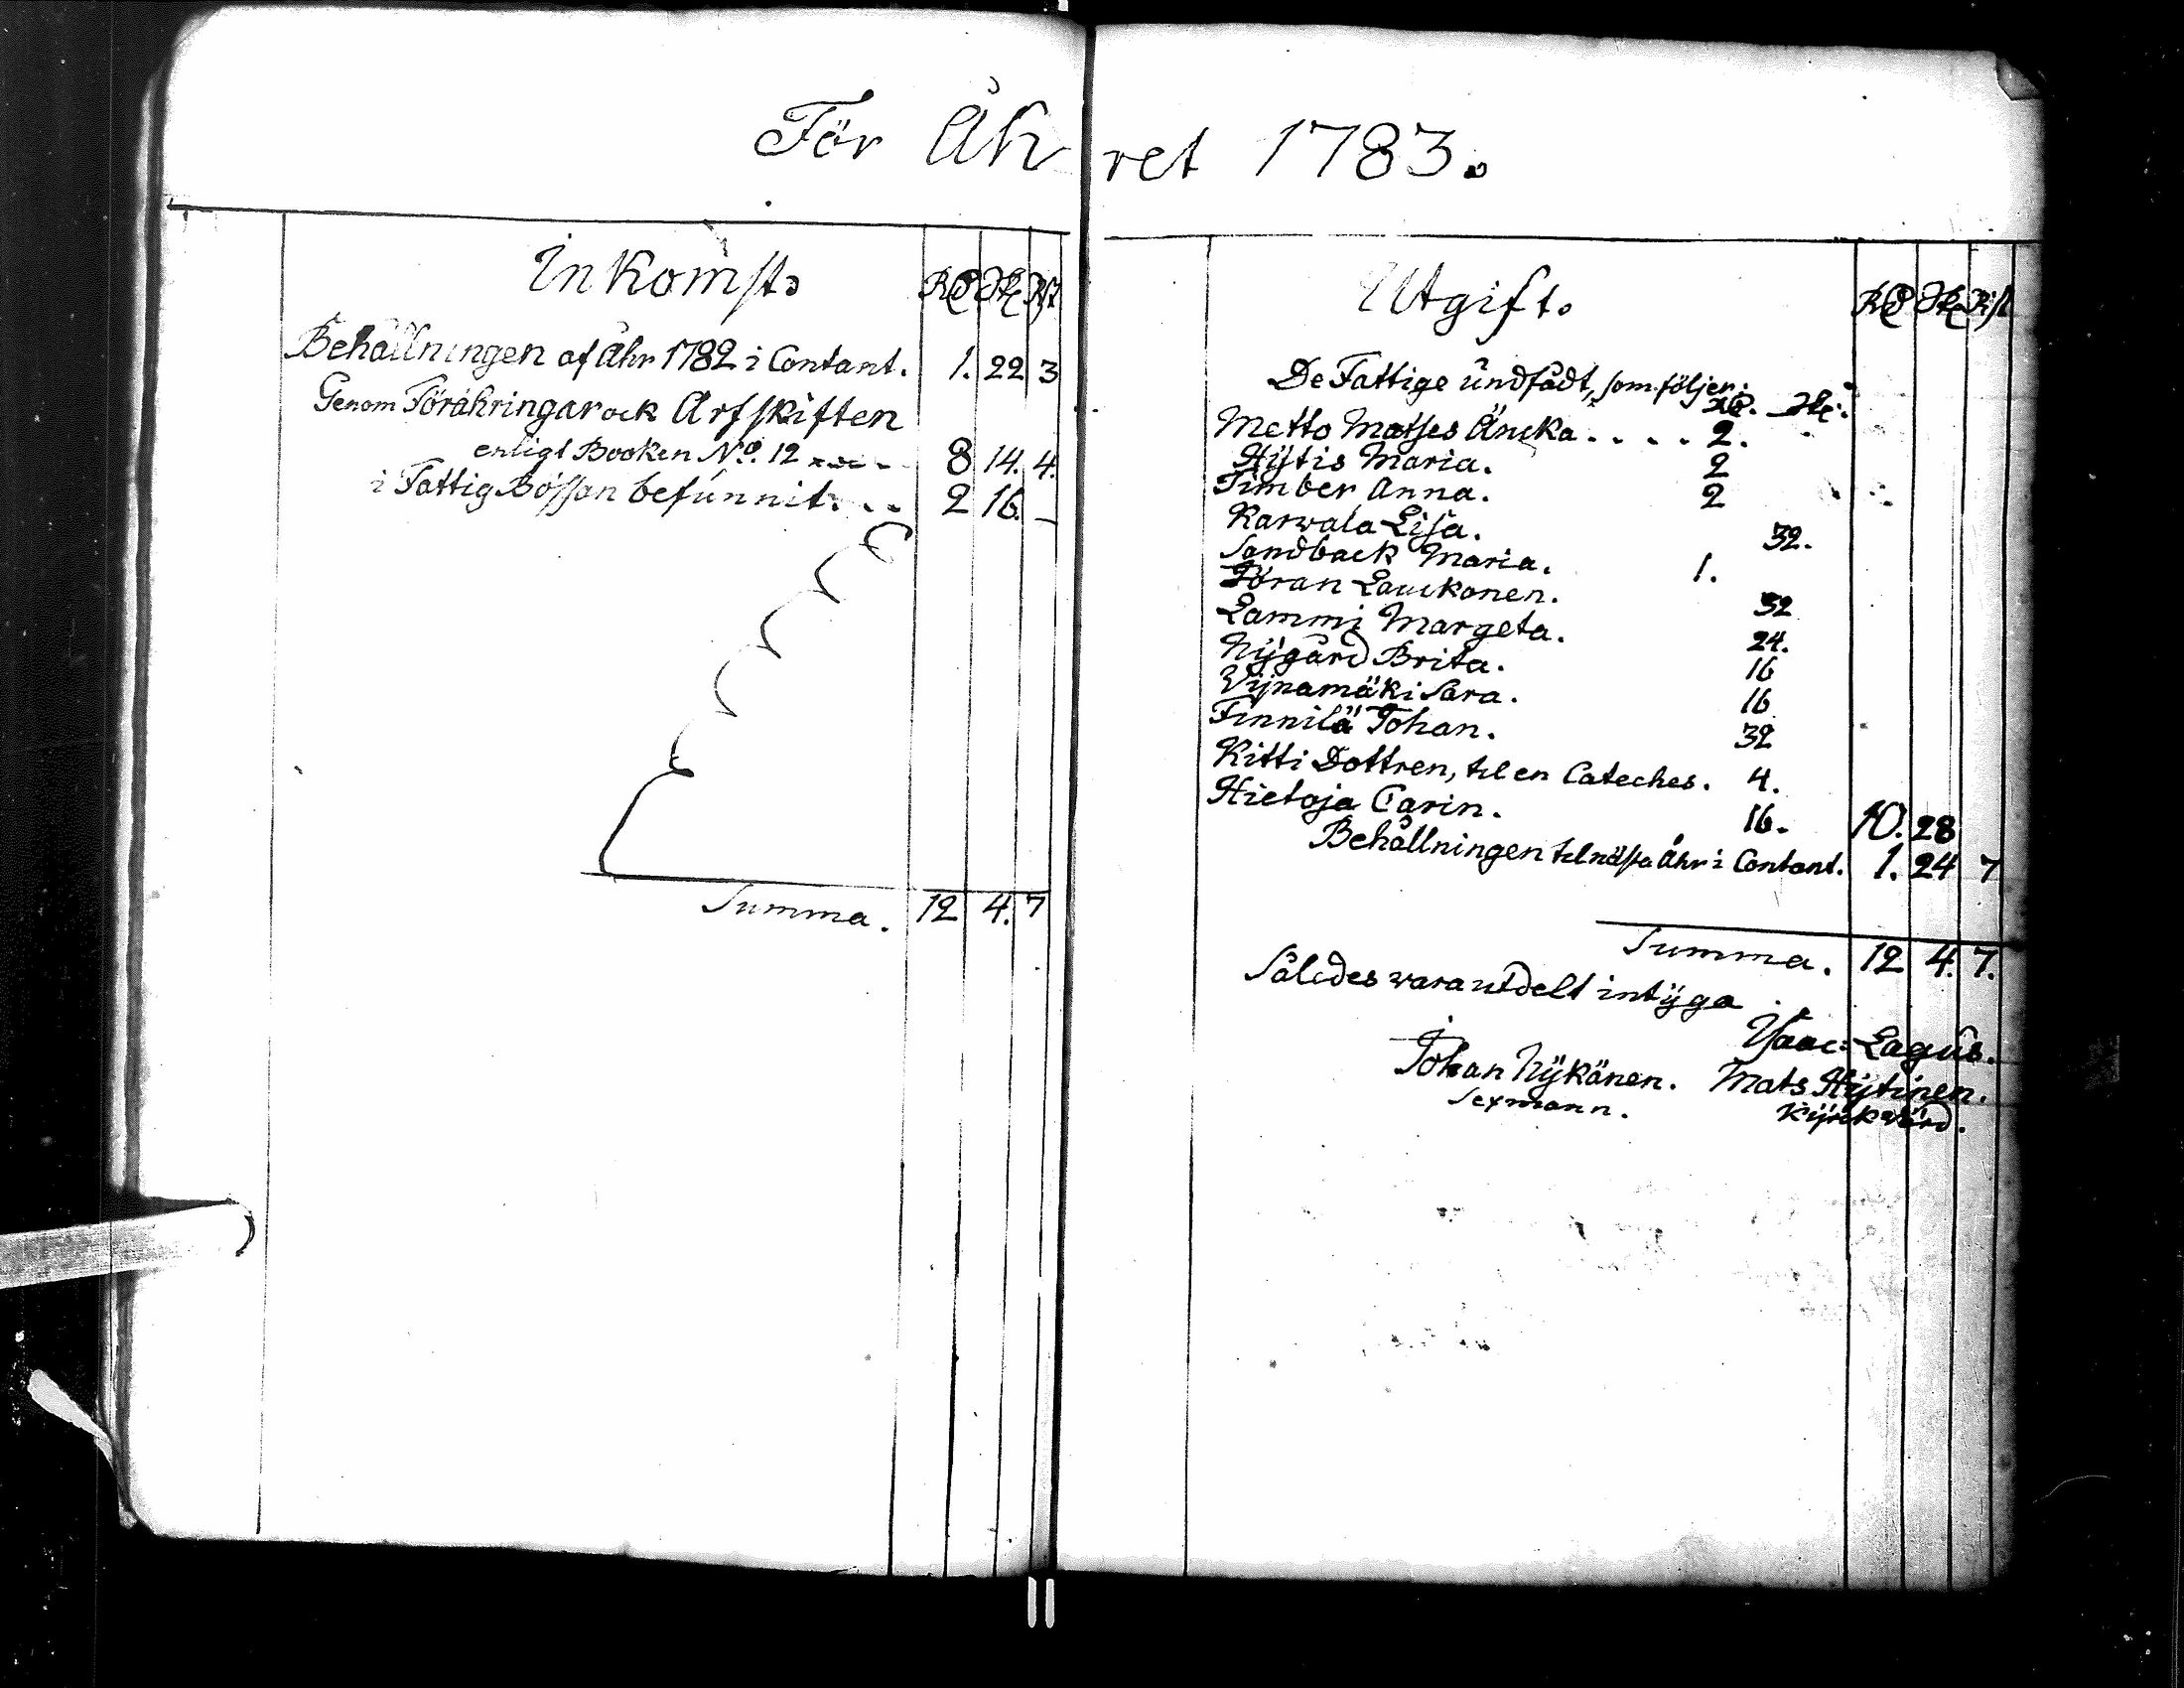 För Åhret 1783.
Inkomst.
Rd Sk Rst
Behållningen af Åhr 1782 i Contant. 1. 22 3
Genom Föråhringar ock Arfskiften
enligt Booken No. 12 8 14. 4.
i Fattig Bössan befunnit. . . 2 16. –
Summa. 12 4. 7
Utgift.
Rd Sk Rst
De Fattige undfådt, som följer:
Rd. Sk:
Metto Matses Äncka . . . . 2.
Hÿtis Maria. 2
Timber Anna. 2
Karvala Lisa. 32.
Sandback Maria. 1.
Jöran Lauckonen. 32
Lammi Margeta. 24.
Nÿgård Brita. 16
Vijnamäki Sara. 16
Finnilä Johan. 32
Kitti Dottren, til en Cateches. 4.
Hietoja Carin. 16. 10. 28
Behållningen til nästa Åhr i Contant. 1. 24 7
Summa. 12 4. 7.
Således vara utdelt intÿga
Isaac Lagus.
Johan Nÿkänen. Mats Hÿtinen.
Sexmann. Kÿrckvärd.